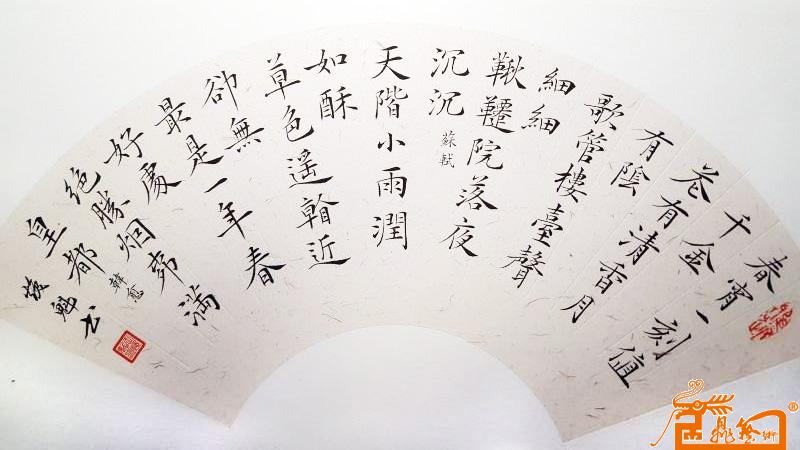 春宵一刻值
千金
花有清香月
有陰
歌管樓臺聲
細細
鞦韆院落夜
沉沉 蘇軾
天階小雨潤
如酥
草色遙看近
卻無
最是一年春
好處
絕勝烟柳滿
皇都 韓愈
魁书
鼎藝術